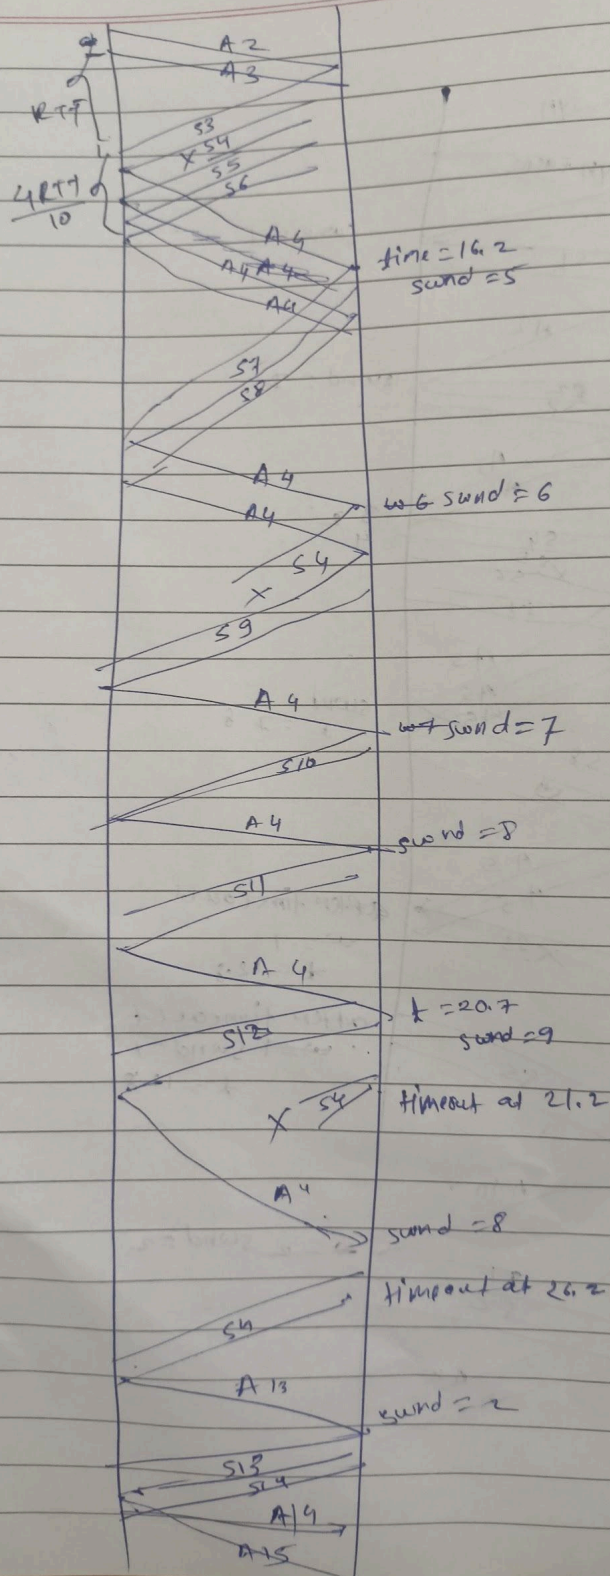 A2
A3
RTT
S3
X S4
S5
S6
4RTT
10
A4
time = 16.2
swnd = 5
A4 A4
A4
S7
S8
A4
w6 swnd = 6
A4
S4
X
S9
A4
w7 swnd = 7
S10
A4
swnd = 8
S11
A4
t = 20.7
swnd = 9
S12
S4
X
timeout at 21.2
A4
swnd = 8
timeout at 26.2
S4
A13
swnd = 2
S13
S14
A14
A15